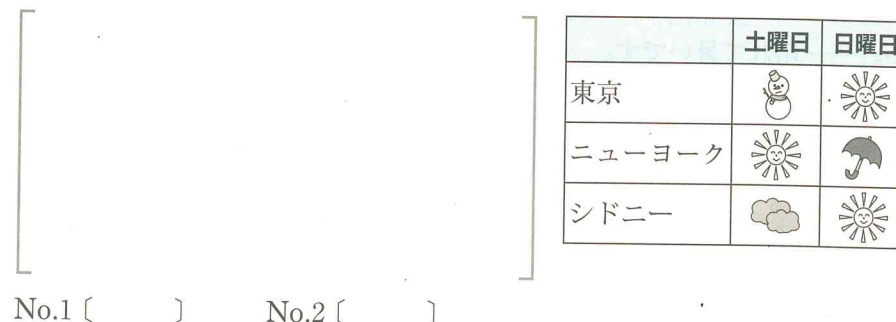 土曜日 日曜日
東京
ニューヨーク
シドニー
No.1〔 〕 No.2〔 〕